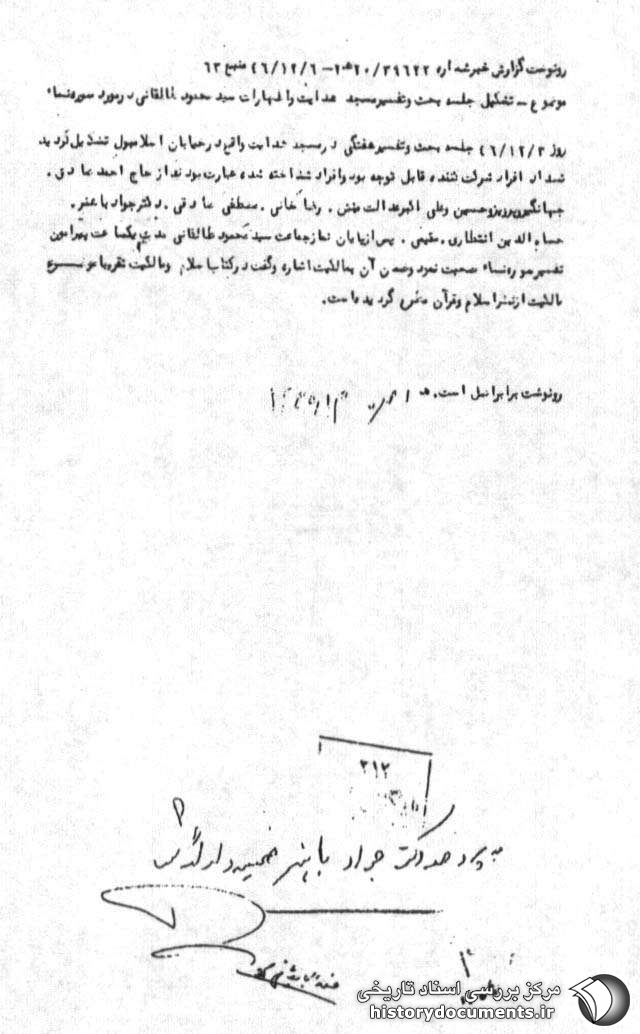 رونوشت گزارش خبر شماره ۳۹۶۲۲/ ۲۰ﻫ۲ – ۴۶/۱۲/۶ منبع ۶۳
موضوع – تشکیل جلسه بحث و تفسیر مسجد هدایت و اظهارات سید محمود طالقانی در مورد سوره نساء
روز ۴۶/۱۲/۳ جلسه بحث و تفسیر هفتگی در مسجد هدایت واقع در خیابان اسلامبول تشکیل گردید
تعداد افراد شرکت کننده قابل توجه بود و افراد شناخته شده عبارت بودند از حاج احمد صادقی .
جهانگیر پرویز و حسین و علی اکبر عدالت منش . رضا خانی . مصطفی صادقی . دکتر جواد باهنر .
حسام الدین انتظاری . مقیمی . پس از پایان نماز جماعت سید محمود طالقانی مدت یکساعت پیرامون
تفسیر سوره نساء صحبت نمود و ضمن آن بمالکیت اشاره و گفت در کتاب اسلام و مالکیت تقریبا موضوع
مالکیت از نظر اسلام و قرآن منعکس گردیده است .
رونوشت برابر اصل است . ﻫ
۲۱۲
پرونده دکتر جواد باهنر ضمیمه و ارائه گردد
مرکز بررسی اسناد تاریخی
historydocuments.ir